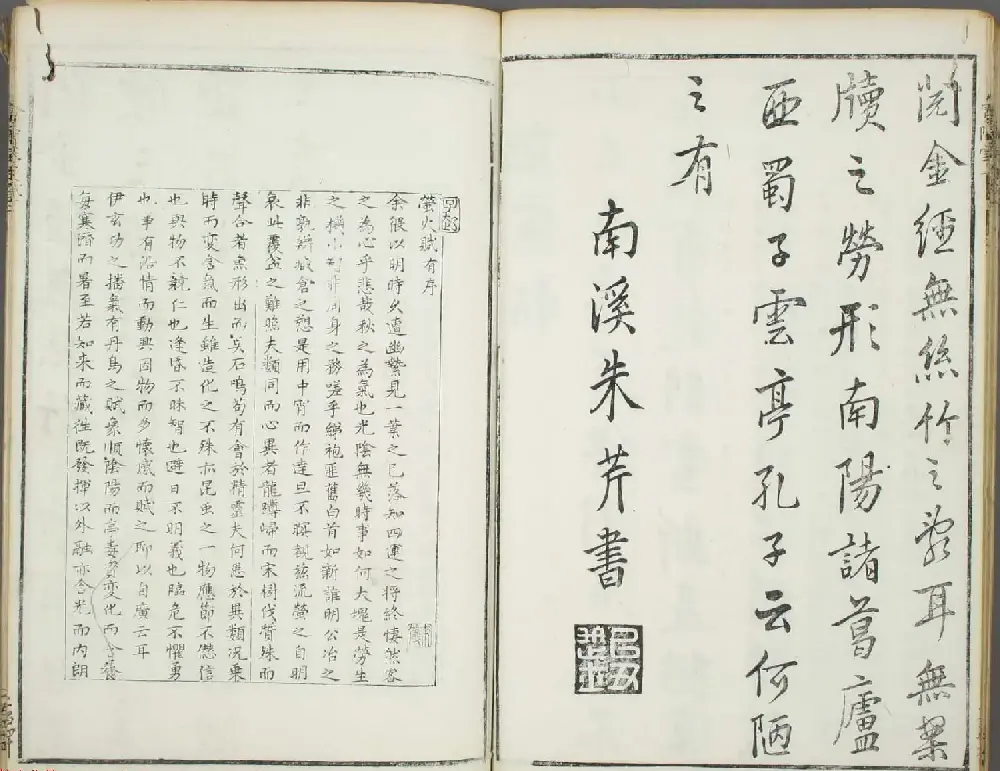 閱金經無絲竹之亂耳無案
牘之勞形南陽諸葛廬
西蜀子雲亭孔子云何陋
之有
南溪朱芹書
螢火賦有序
余猥以明時久遭幽縶見一葉之已落知四運之將終悽然客
之為心乎悲哉秋之為氣也光陰無幾時事如何大塊是勞生
之機小智非周身之務嗟乎綈袍匪舊白首如新誰明公冶之
非孰辨臧倉之愬是用中宵而作達旦不暝覩茲流螢之自明
哀此覆盆之難照夫類同而心異者龍蹲歸而宋樹伐質殊而
聲合者魚形出而吳石鳴苟有會於精靈夫何患於異類況乘
時而變含氣而生雖造化之不殊亦昆蟲之一物應節不愆信
也與物不競仁也逢昏不昧智也避日不明義也臨危不懼勇
也事有沿情而動興因物而多懷感而賦之聊以自廣云耳
伊玄功之播氣有丹鳥之賦象順陰陽而亭毒資變化而含養
每寒濟而暑至若知來而藏往既發揮以外融亦含光而內朗